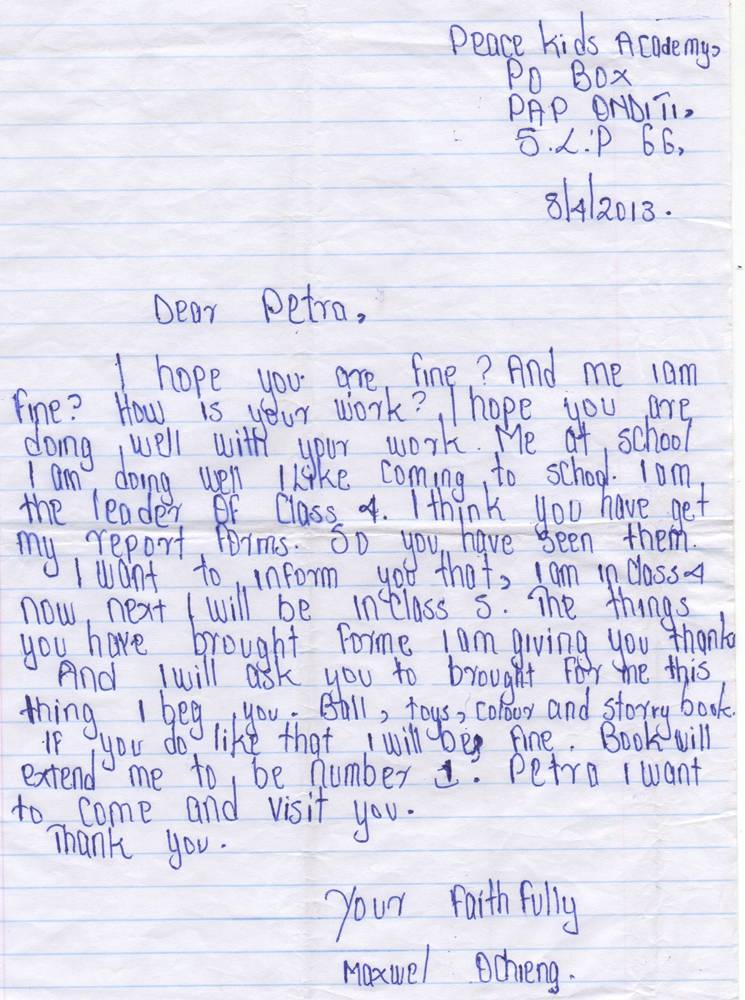 Peace kids Academy,
PO BOX
PAP ONDITI,
S.L.P 66,
8/4/2013.
Dear Petra,
I hope you are fine? And me iam
fine? How is your work? I hope you are
doing well with your work. Me at school
I am doing well I Like coming to school. Iam
the leader OF Class 4. I think you have get
my report forms. So you have seen them.
I want to inform you that, iam in Class 4
now next I will be in Class 5. The things
you have brought forme I am giving you thank
And I will ask you to brought for me this
thing I beg you. Ball, toys, colour and storry book.
if you do like that I will be fine. Book will
extend me to be number 1. Petra I want
to come and visit you.
Thank you.
Your faithfully
Maxwel Ochieng.